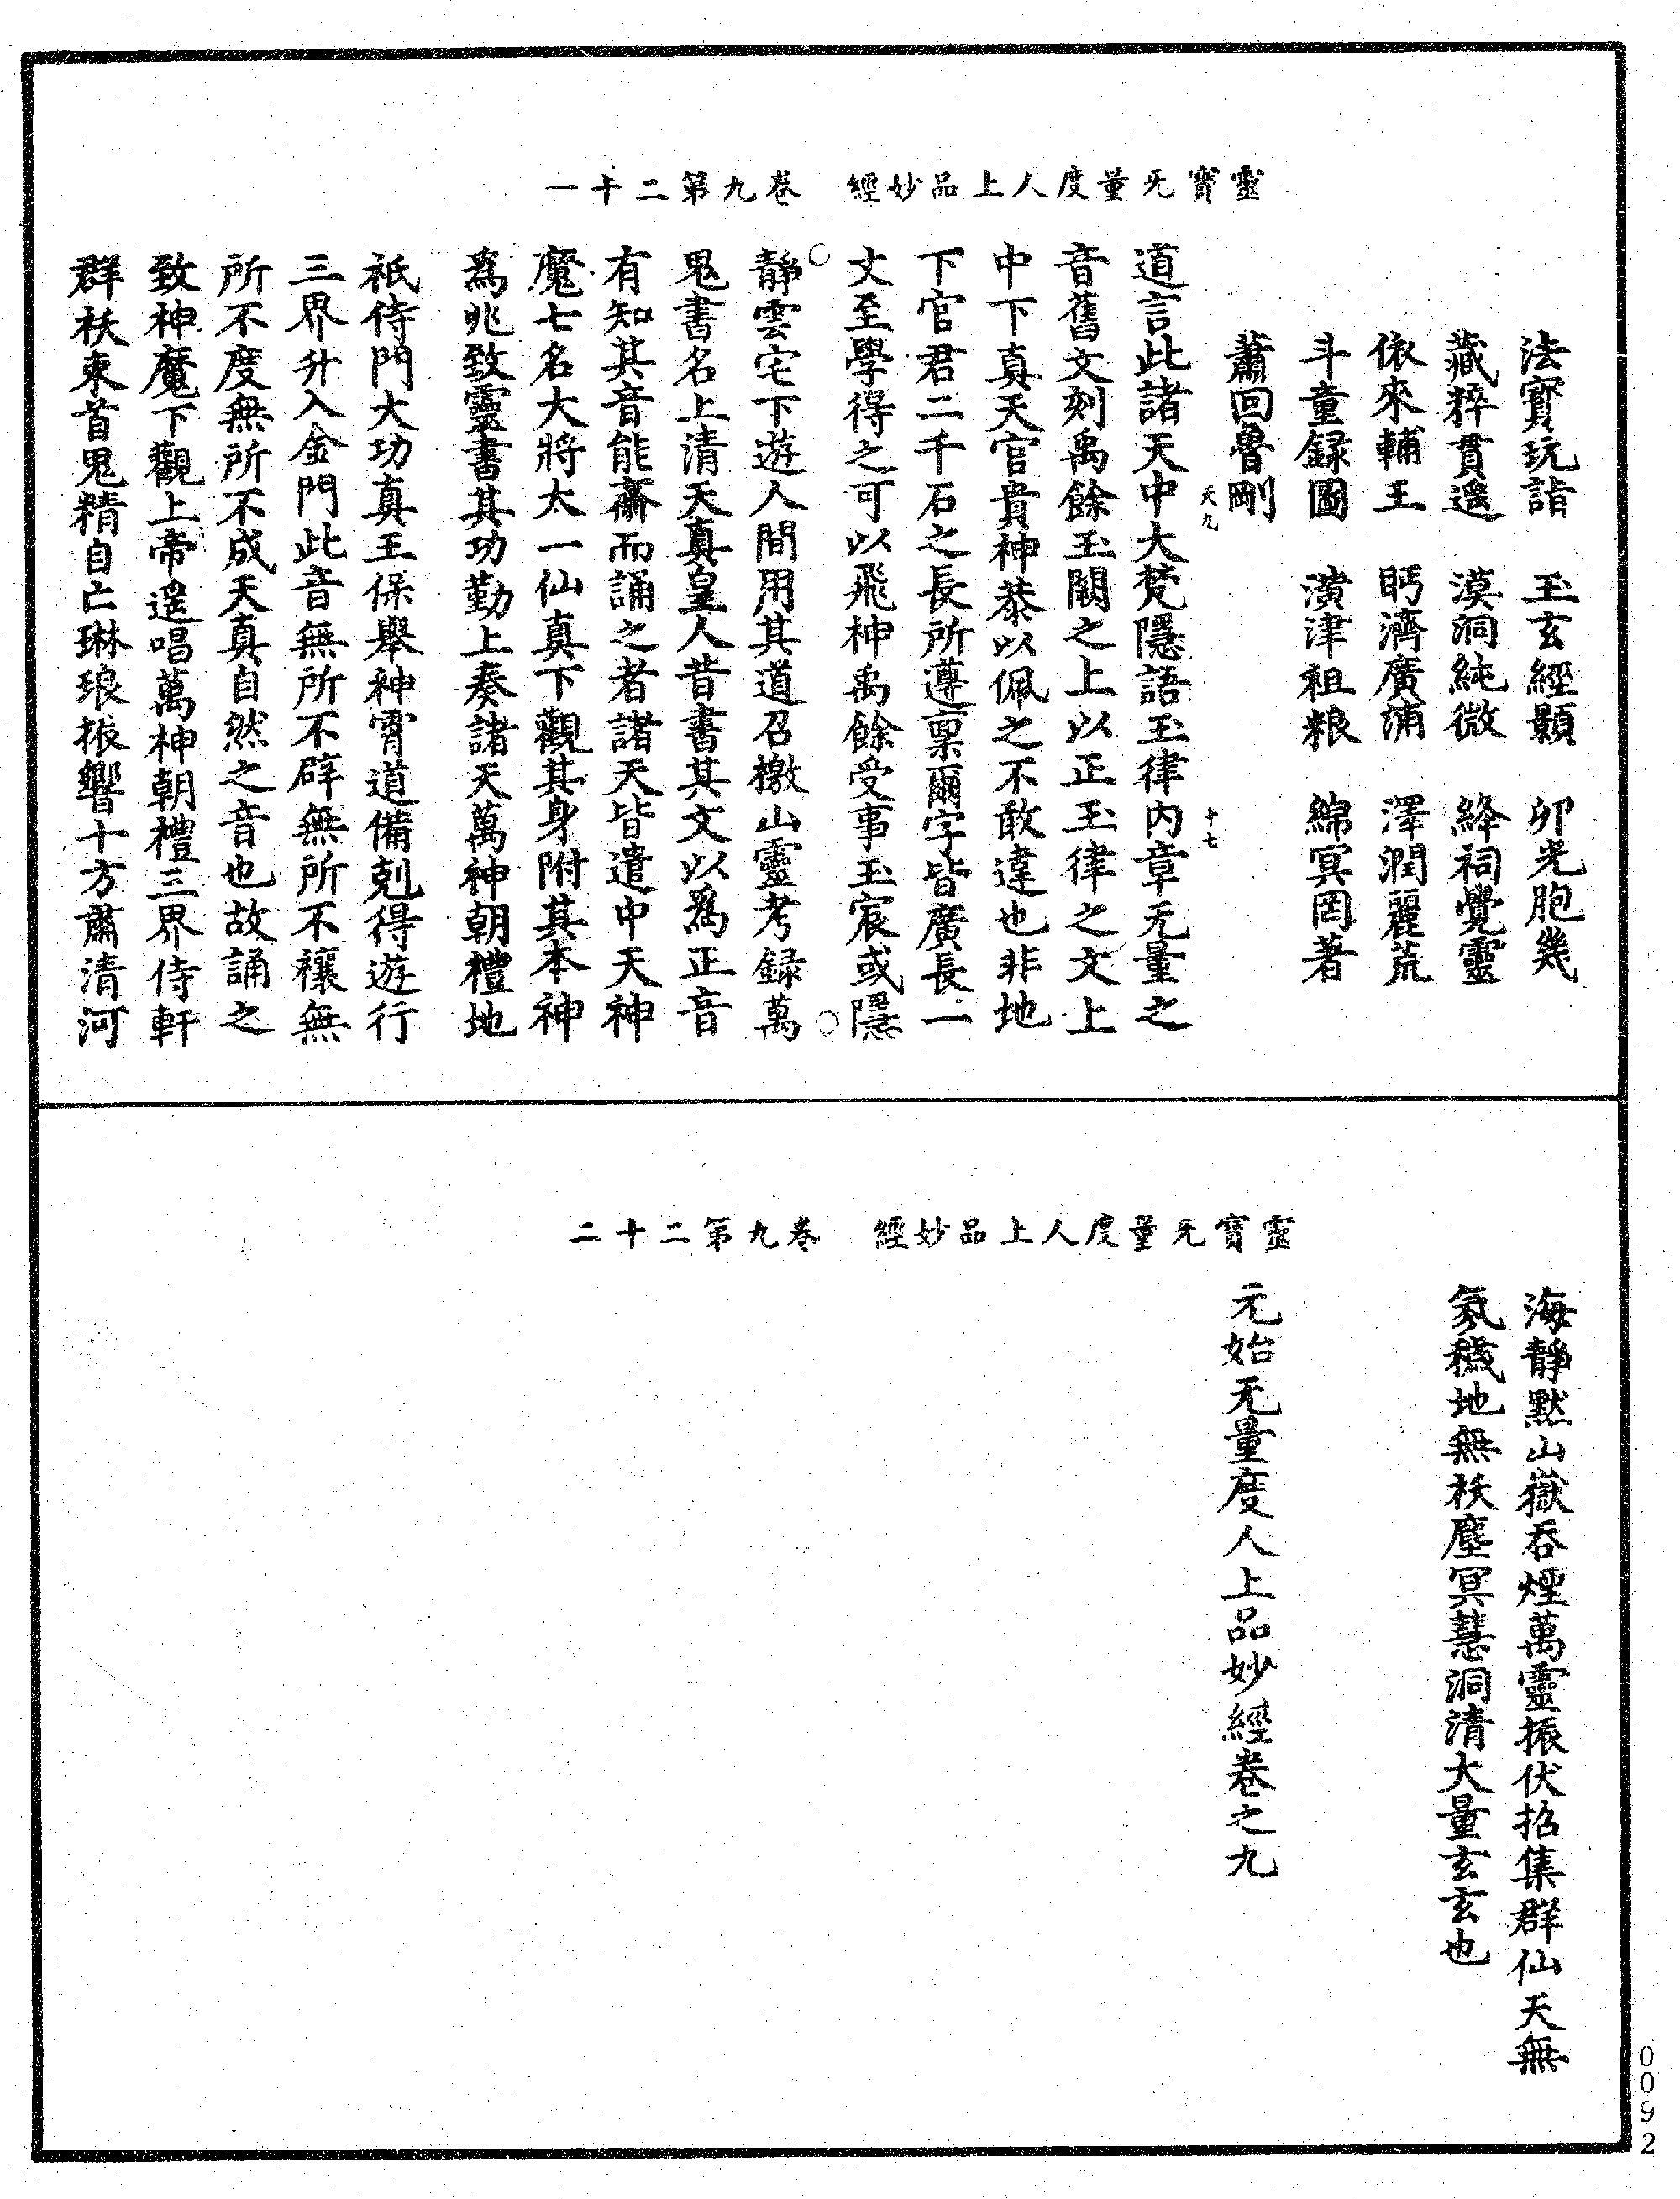 靈寶无量度人上品妙經　卷九第二十一
法寶玩詣　玉玄經顥　卯光胞幾
藏粹貫邈　漠洞純微　絳祠覺靈
依來輔王　眄濟廣浦　澤潤麗荒
斗童録圖　潢津祖粮　綿冥罔著
蕭回魯剛
天九　十七
道言此諸天中大梵隱語玉律内章无量之
音舊文刻禹餘玉闕之上以正玉律之文上
中下真天官貴神恭以佩之不敢違也非地
下官君二千石之長所遵禀爾字皆廣長一
丈至學得之可以飛神禹餘受事玉宸或隱
靜雲宅下遊人間用其道召檄山靈考録萬
鬼書名上清天真皇人昔書其文以爲正音
有知其音能齋而誦之者諸天皆遣中天神
魔七名大將太一仙真下觀其身附其本神
爲兆致靈書其功勤上奏諸天萬神朝禮地
祇侍門大功真王保舉神霄道備剋得遊行
三界升入金門此音無所不辟無所不禳無
所不度無所不成天真自然之音也故誦之
致神魔下觀上帝遥唱萬神朝禮三界侍軒
群袄束首鬼精自亡琳琅振響十方肅清河
靈寶无量度人上品妙經　卷九第二十二
海靜默山嶽吞煙萬靈振伏招集群仙天無
氛穢地無袄塵冥慧洞清大量玄玄也
元始无量度人上品妙經卷之九
0092